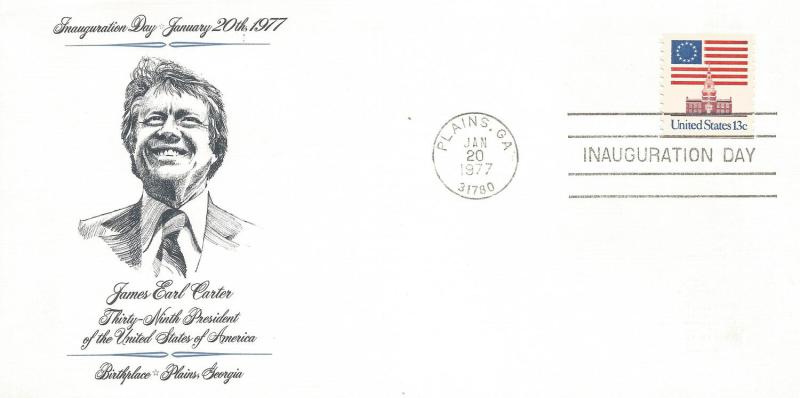 Inauguration Day ☆ January 20th, 1977
James Earl Carter
Thirty-Ninth President
of the United States of America
Birthplace ☆ Plains, Georgia
PLAINS, GA
JAN
20
1977
31780
United States 13c
INAUGURATION DAY